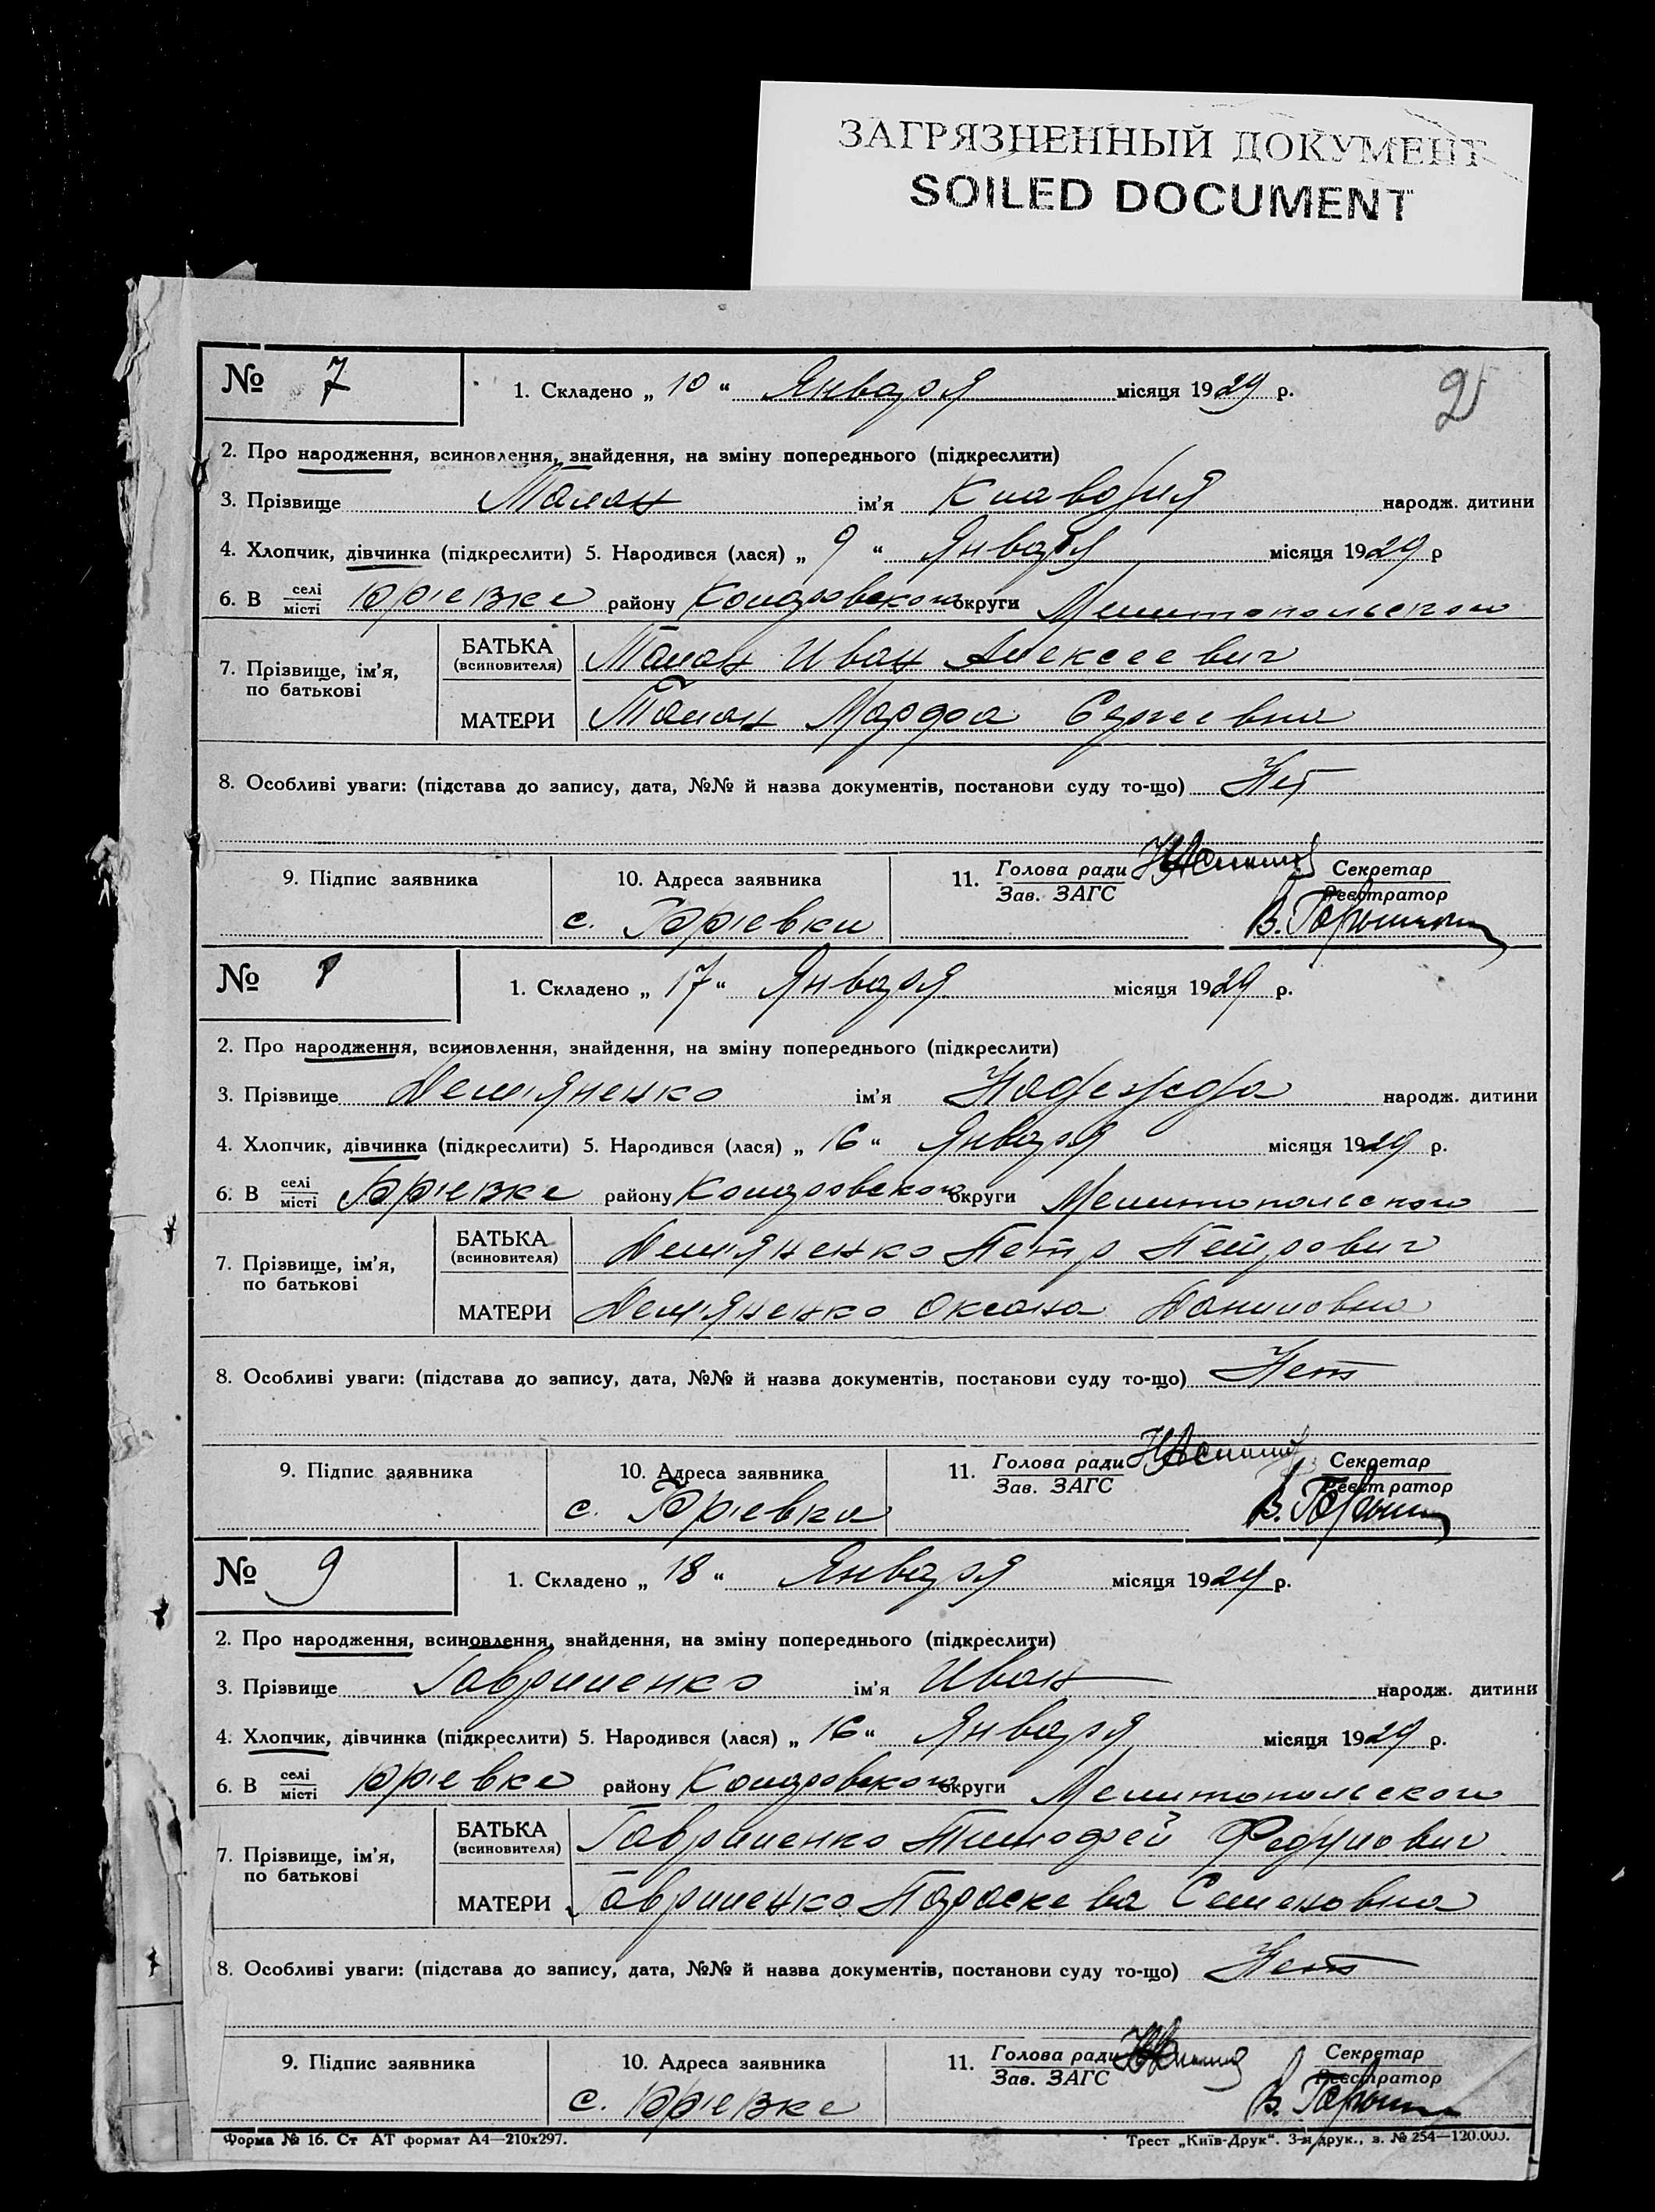 ЗАГРЯЗНЕННЫЙ ДОКУМЕНТ
SOILED DOCUMENT
2
№ 7
1. Складено „ 10 “ Января місяця 1929 р.
2. Про народження, всиновлення, знайдення, на зміну попереднього (підкреслити)
3. Прізвище Талан ім'я Клавдия народж. дитини
4. Хлопчик, дівчинка (підкреслити) 5. Народився (лася) „ 9 “ Января місяця 1929 р
6. В селі місті Юр'евке району округи Мелитопольского
7. Прізвище, ім'я, по батькові
БАТЬКА (всиновителя) Талан Иван Алексеевич
МАТЕРИ Талан Марфа Сергеевна
8. Особливі уваги: (підстава до запису, дата, №№ й назва документів, постанови суду то-що) Нет
9. Підпис заявника
10. Адреса заявника
с. Юр'евки
11. Голова ради Зав. ЗАГС
Секретар Реєстратор
№ 8
1. Складено „ 17 “ Января місяця 1929 р.
2. Про народження, всиновлення, знайдення, на зміну попереднього (підкреслити)
3. Прізвище Дем'яненко ім'я Надежда народж. дитини
4. Хлопчик, дівчинка (підкреслити) 5. Народився (лася) „ 16 “ Января місяця 1929 р.
6. В селі місті Юр'евке району округи Мелитопольского
7. Прізвище, ім'я, по батькові
БАТЬКА (всиновителя) Дем'яненко Петр Петрович
МАТЕРИ Дем'яненко Оксана Даниловна
8. Особливі уваги: (підстава до запису, дата, №№ й назва документів, постанови суду то-що) Нет
9. Підпис заявника
10. Адреса заявника
с. Юр'евки
11. Голова ради Зав. ЗАГС
Секретар Реєстратор
№ 9
1. Складено „ 18 “ Января місяця 1929 р.
2. Про народження, всиновлення, знайдення, на зміну попереднього (підкреслити)
3. Прізвище Гавриленко ім'я Иван народж. дитини
4. Хлопчик, дівчинка (підкреслити) 5. Народився (лася) „ 16 “ Января місяця 1929 р.
6. В селі місті Юр'евке району округи Мелитопольского
7. Прізвище, ім'я, по батькові
БАТЬКА (всиновителя) Гавриленко Тимофей
МАТЕРИ Гавриленко Параскева Семеновна
8. Особливі уваги: (підстава до запису, дата, №№ й назва документів, постанови суду то-що) Нет
9. Підпис заявника
10. Адреса заявника
с. Юр'евке
11. Голова ради Зав. ЗАГС
Секретар Реєстратор
Форма № 16. Ст АТ формат А4—210х297.
Трест „Київ-Друк“. 3-я друк., з. № 254—120.000.